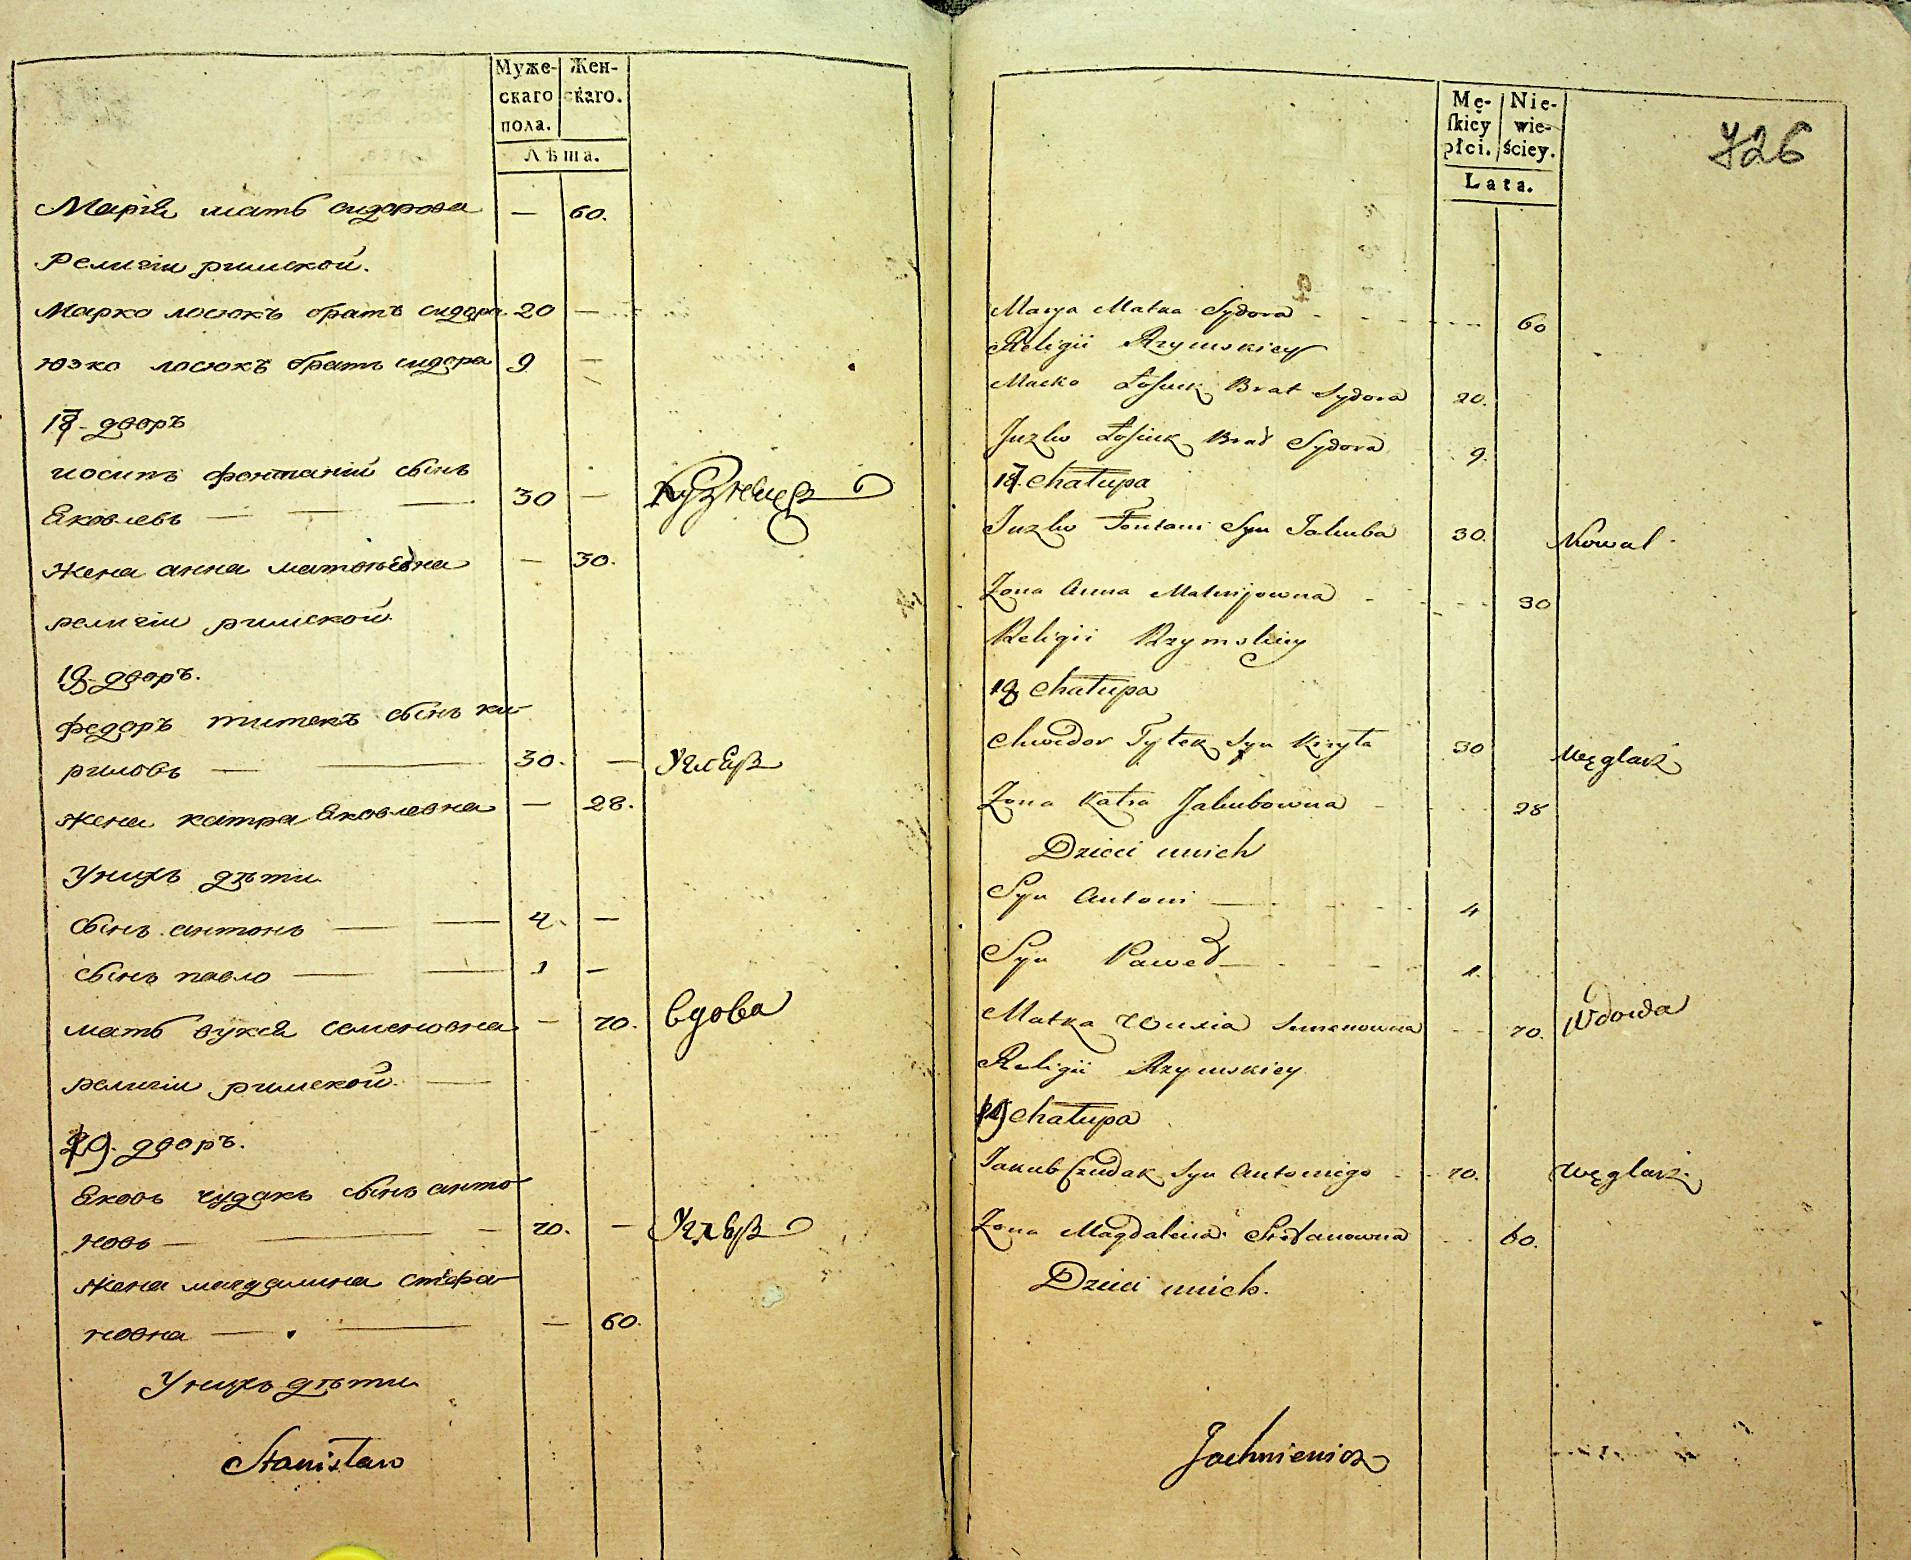 Муже- Жен-
скаго скаго.
пола.
Лѣта.
Марія мать сидорова — 60.
Религіи римской.
Марко лосюкъ братъ сидора 20 —
юзко лосюкъ братъ сидора 9 —
17 дворъ
иосипъ фонтаній сынъ
Яковлевъ — 30 — Кузнецъ
жена анна матвѣевна — 30.
религіи римской
18 дворъ.
федоръ титекъ сынъ ки-
риловъ — 30. — Углярь
жена катра Яковлевна — 28.
у нихъ дѣти
сынъ антонъ — 4 —
сынъ павло — 1 —
мать вукся семеновна — 70. вдова
религіи римской
19. дворъ.
Яковъ чудакъ сынъ анто-
новъ — 70. — Углярь
жена магдалина стефа-
новна — 60.
у нихъ дѣти
Stanisław
Mę- Nie-
ſkiey wie-
płci. ściey.
Lata.
726
Marya Matka Sydora 60
Religii Rzymskiey
Marko Łosiuk Brat Sydora 20.
Juzko Łosiuk Brat Sydora 9.
17 Chałupa
Juzko Fontani Syn Jakuba 30. Kowal
Zona Anna Matwijowna 30
Religii Rzymskiey
18 Chałupa
Chwedor Tytek Syn Kiryła 30 Węglarz
Zona Katra Jakubowna 28
Dzieci u nich
Syn Antoni 4
Syn Paweł 1.
Matka Wuxia Semenowna 70. Wdowa
Religii Rzymskiey
19 Chałupa
Jakub Czudak Syn Antoniego 70. Węglarz
Zona Magdalena Stefanowna 60.
Dzieci u nich.
Jachniewicz